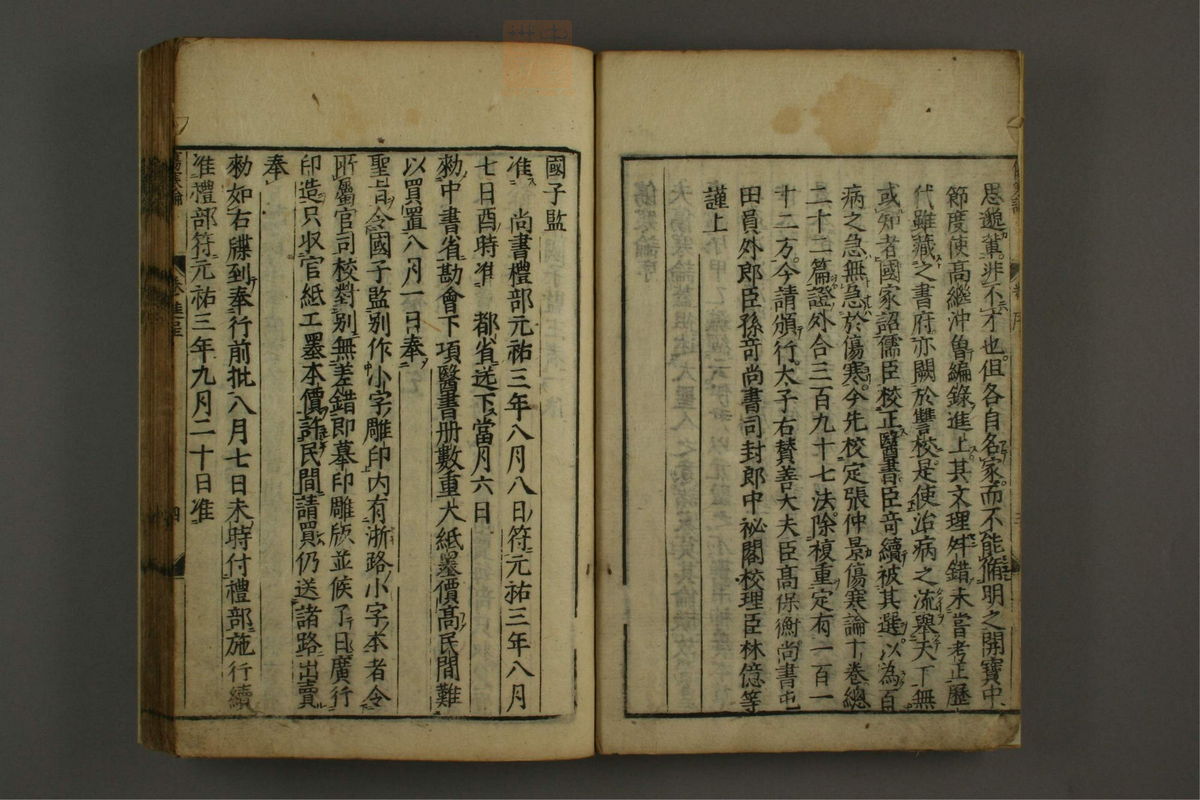 思邈輩非不才也但各自名家而不能脩明之開寶中
節度使高繼沖曽編錄進上其文理舛錯未嘗考正歷
代雖藏之書府亦闕於讐校是使治病之流舉天下無
或知者國家詔儒臣校正醫書臣竒續被其選以為百
病之急無急於傷寒今先校定張仲景傷寒論十卷總
二十二篇證外合三百九十七法除複重定有一百一
十二方今請頒行太子右贊善大夫臣高保衡尚書屯
田員外郎臣孫竒尚書司封郎中祕閣校理臣林億等
謹上
國子監
准 尚書禮部元祐三年八月八日符元祐三年八月
七日酉時准 都省送下當月六日
勑中書省勘會下項醫書册數重大紙墨價高民間難
以買置八月一日奉
聖旨令國子監别作小字雕印内有浙路小字本者令
所屬官司校對别無差錯即摹印雕版並候了日廣行
印造只收官紙工墨本價許民間請買仍送諸路出賣
奉
勑如右牒到奉行前批八月七日未時付禮部施行續
准禮部符元祐三年九月二十日准